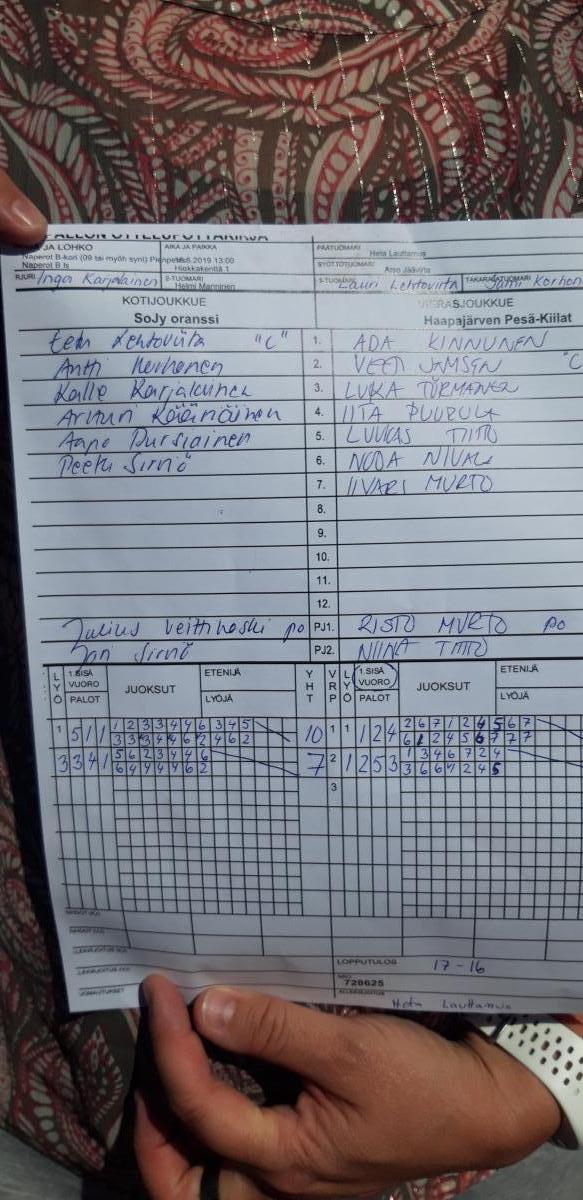 JA LOHKO AIKA JA PAIKKA PÄÄTUOMARI Heta Lauttamus
Naperot B-kori (09 tai myöh synt) 8.2019 13:00 SYÖTTÖTUOMARI
Naperot B ls Hiekkakenttä 1 Jäävirta
Inga Karjalainen 2-TUOMARI Helmi Manninen 3-TUOMARI Lauri Lehtovirta TAKARAJATUOMARI Jami Korhon
KOTIJOUKKUE VIERASJOUKKUE
SoJy oranssi Haapajärven Pesä-Kiilat
Lehtovirta "C" 1. ADA KINNUNEN
Antti Kerhonen 2. VEETI JÄMSEN "C
Kalle Karjalainen 3. LUKA TÖRMÄNEN
Artturi Kääriäinen 4. IITA PUURULA
Aapo Pursiainen 5. LUUKAS TIITTO
Peetu Sirviö 6. NOOA NIVALA
7. IIVARI MURTO
8.
9.
10.
11.
12.
Julius Veittikoski po PJ1. RISTO MURTO PO
Sirviö PJ2. NIINA TIITTO
LYÖ 1.SISÄ VUORO PALOT JUOKSUT ETENIJÄ LYÖJÄ YHT VRP LYÖ 1.SISÄ VUORO PALOT JUOKSUT ETENIJÄ LYÖJÄ
1 5 1 1 1 2 3 3 4 4 6 3 4 5 10 1 1 1 2 4 2 6 7 1 2 4 5 6 7
3 3 3 4 4 6 2 4 6 2 6 1 2 4 5 6 7 7 7
3 3 4 1 5 6 2 3 4 4 6 7 2 1 2 5 3 1 3 4 6 7 2 4
6 4 4 4 4 6 2 3 6 6 7 2 4 5
3
LOPPUTULOS 17-16
728625
ALLEKIRJOITUS Heta Lauttamus